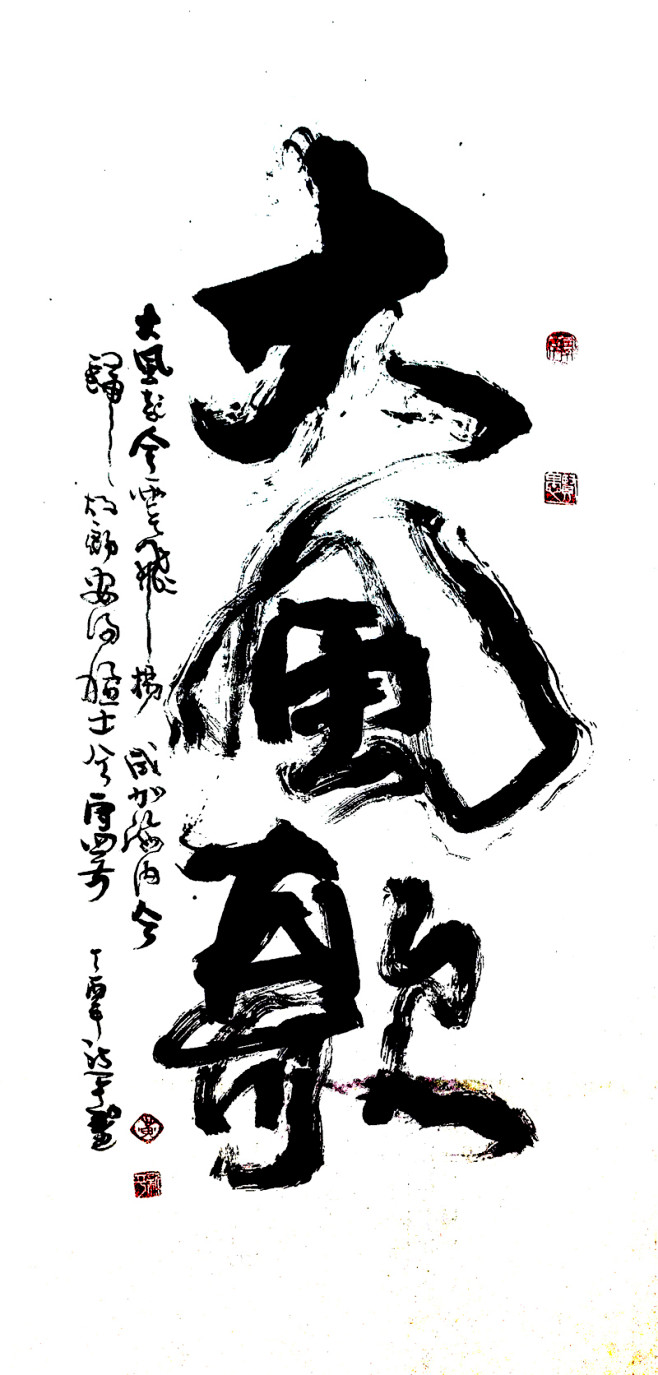 大風歌
大風起兮雲飛揚 威加海内兮
歸故鄉安得猛士兮守四方